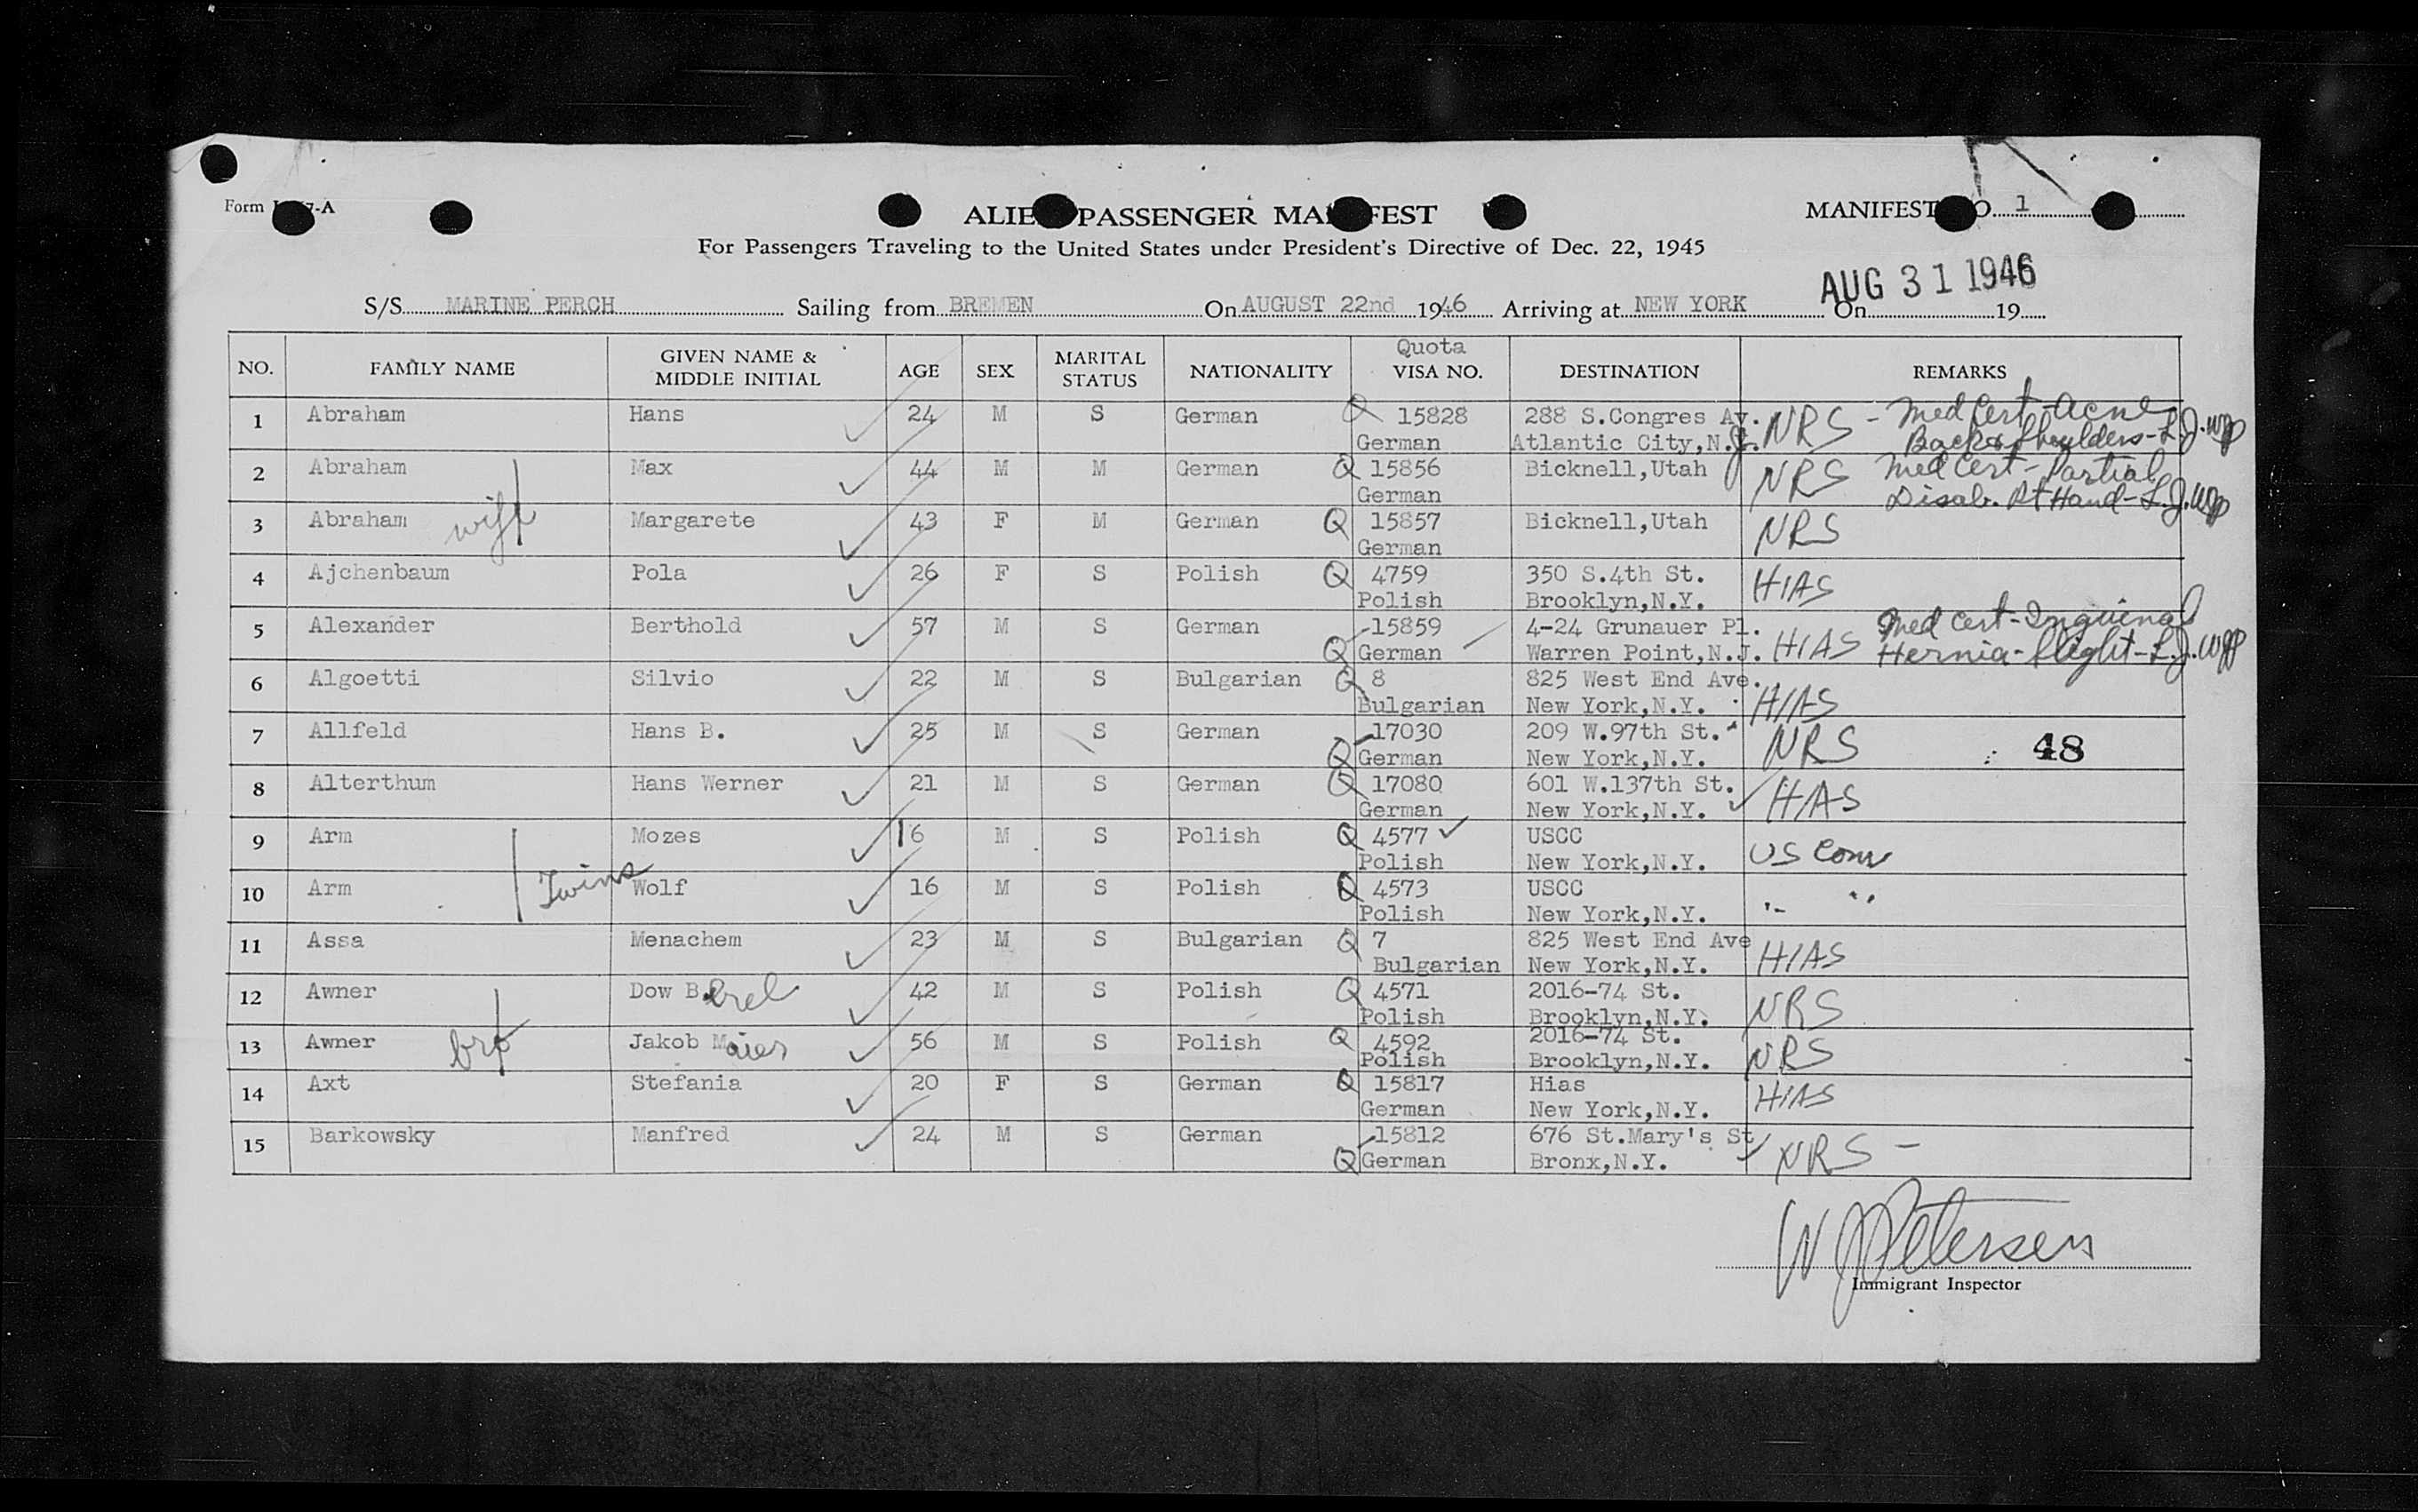 Form I-?-A
ALIEN PASSENGER MANIFEST
MANIFEST NO. 1
For Passengers Traveling to the United States under President's Directive of Dec. 22, 1945
AUG 31 1946
S/S MARINE PERCH Sailing from BREMEN On AUGUST 22nd 1946 Arriving at NEW YORK On 19
NO. FAMILY NAME GIVEN NAME & MIDDLE INITIAL AGE SEX MARITAL STATUS NATIONALITY Quota VISA NO. DESTINATION REMARKS
1 Abraham Hans 24 M S German Q 15828 288 S.Congres Av. NRS - Med Cert - Acne
German Atlantic City,N.J. Back & Shoulders - L.J.
2 Abraham Max 44 M M German Q 15856 Bicknell,Utah NRS Med Cert - Partial
German Disab. Rt Hand - L.J.
3 Abraham wife Margarete 43 F M German Q 15857 Bicknell,Utah NRS
German
4 Ajchenbaum Pola 26 F S Polish Q 4759 350 S.4th St. HIAS
Polish Brooklyn,N.Y.
5 Alexander Berthold 57 M S German 15859 4-24 Grunauer Pl. Med Cert - Inguinal
Q German Warren Point,N.J. HIAS Hernia - Right - L.J.
6 Algoetti Silvio 22 M S Bulgarian Q 8 825 West End Ave.
Bulgarian New York,N.Y. HIAS
7 Allfeld Hans B. 25 M S German 17030 209 W.97th St. NRS 48
Q German New York,N.Y.
8 Alterthum Hans Werner 21 M S German Q 17080 601 W.137th St. HIAS
German New York,N.Y.
9 Arm Mozes 16 M S Polish Q 4577 USCC
Polish New York,N.Y. US Com
10 Arm Twins Wolf 16 M S Polish Q 4573 USCC
Polish New York,N.Y. " "
11 Assa Menachem 23 M S Bulgarian Q 7 825 West End Ave HIAS
Bulgarian New York,N.Y.
12 Awner Dow Berel 42 M S Polish Q 4571 2016-74 St. NRS
Polish Brooklyn,N.Y.
13 Awner bro Jakob Maier 56 M S Polish Q 4592 2016-74 St. NRS
Polish Brooklyn,N.Y.
14 Axt Stefania 20 F S German Q 15817 Hias HIAS
German New York,N.Y.
15 Barkowsky Manfred 24 M S German 15812 676 St.Mary's St NRS -
Q German Bronx,N.Y.
W J Petersen
Immigrant Inspector